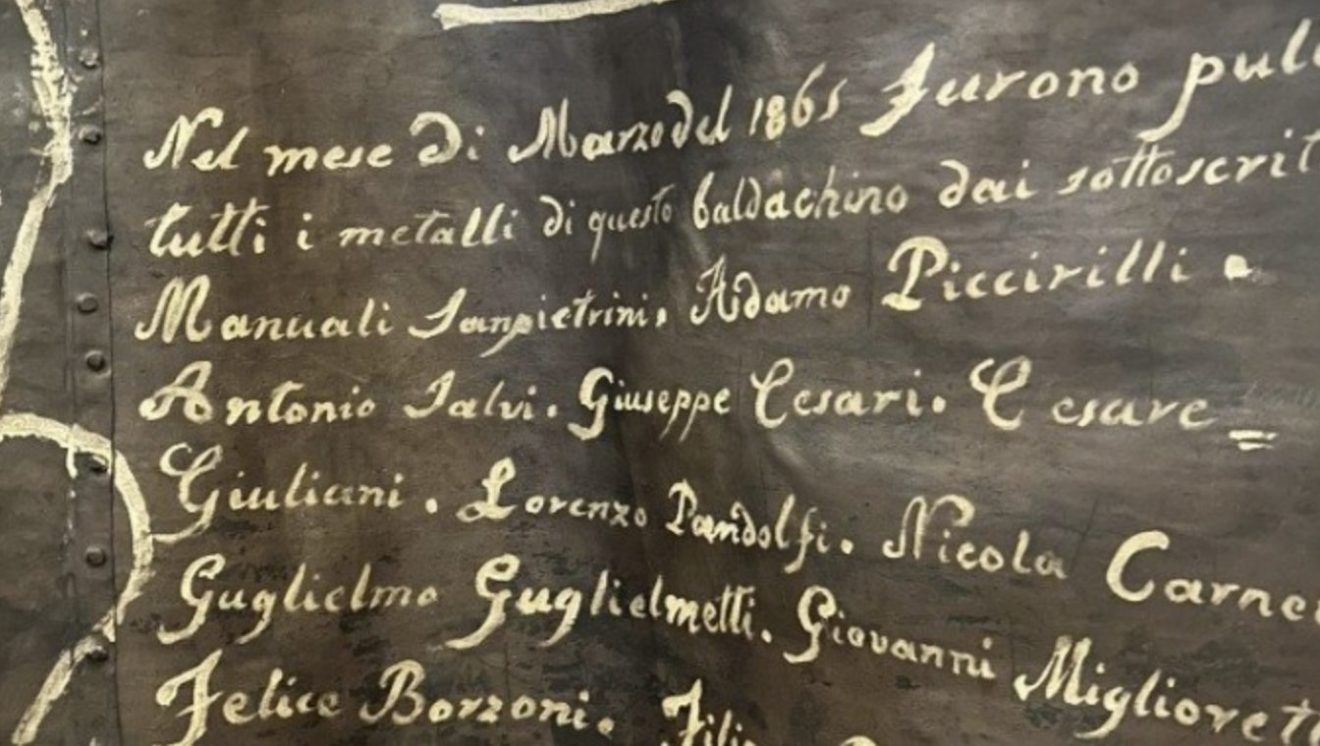 Nel mese di Marzo del 1865 furono
tutti i metalli di questo baldachino dai
Manuali Sanpietrini. Adamo Piccirilli.
Antonio Salvi. Giuseppe Cesari. Cesare =
Giuliani. Lorenzo Pandolfi. Nicola
Guglielmo Guglielmetti. Giovanni
Felice Borzoni.